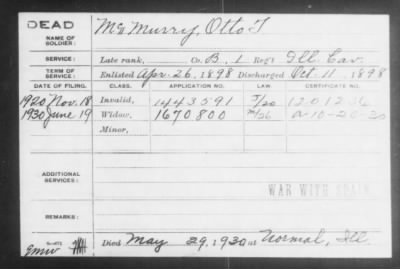 DEAD
NAME OF SOLDIER: McMurry, Otto T
SERVICE: Late rank, Co. B, 1 Reg't Ill. Cav.
TERM OF SERVICE: Enlisted Apr. 26, 1898 Discharged Oct. 11, 1898
DATE OF FILING. CLASS. APPLICATION NO. LAW. CERTIFICATE NO.
1920 Nov. 18 Invalid, 1443591 1201236
1930 June 19 Widow, 1670800 A-10-20-30
Minor,
ADDITIONAL SERVICES:
WAR WITH SPAIN
REMARKS:
Died May 29, 1930 at Normal, Ill.